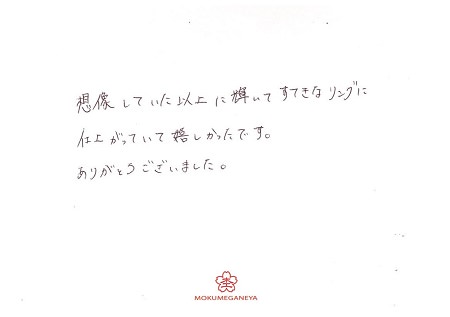 想像していた以上に輝いてすてきなリングに
仕上がっていて嬉しかったです。
ありがとうございました。
MOKUMEGANEYA